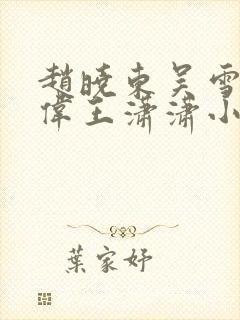 趙曉東吳雪
偉王瀟瀟小
葉家妤